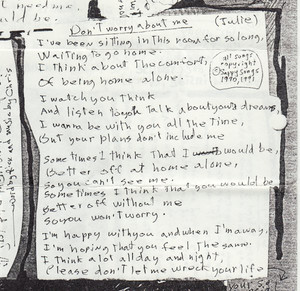 need me
could be.
Don't worry about me (Julie)
I've been sitting in this room for so long.
Waiting to go home.
I think about the comfort,
Of being home alone.
all songs
copyright
© Snappy Songs
1990, 1991
I watch you think
And listen to you talk about your dreams
I wanna be with you all the time,
But your plans don't include me
Sometimes I think that I would be,
Better off at home alone,
So you can't see me.
Sometimes I think that you would be
better off without me
So you won't worry.
I'm happy with you and when I'm away.
I'm hoping that you feel the same.
I think a lot all day and night,
Please don't let me wreck your life
music by Chris